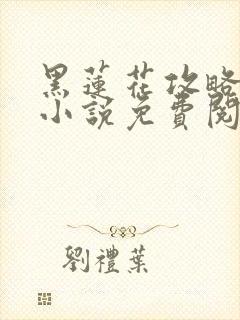 黑蓮花攻略
小說免費閱
劉禮葉